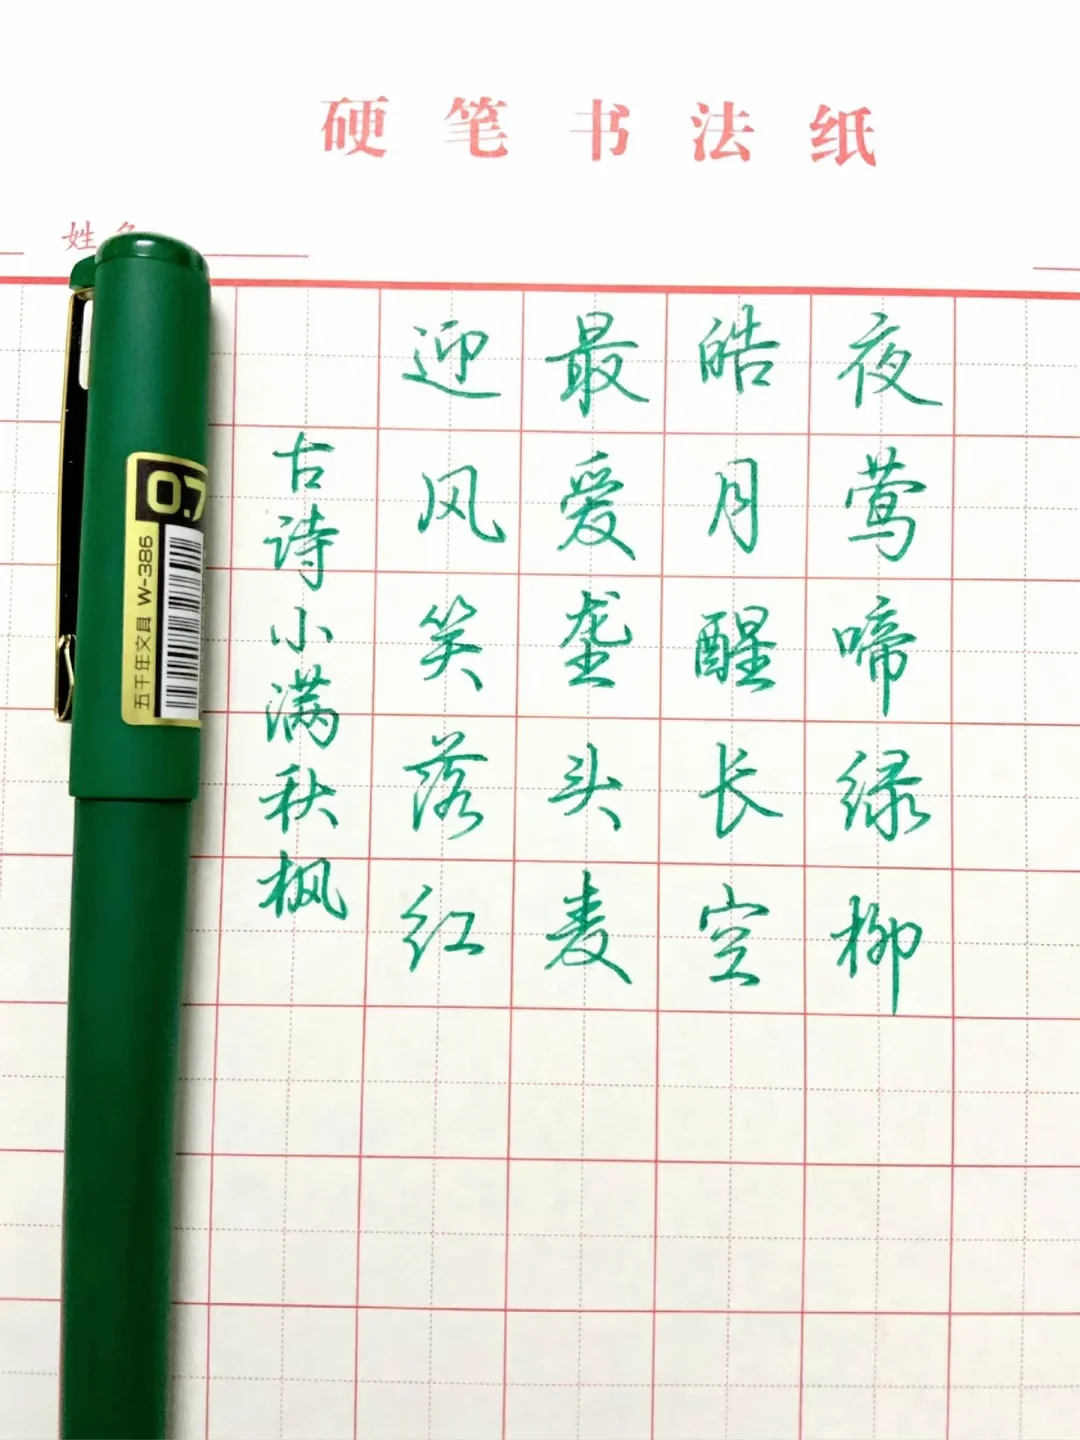 硬笔书法纸
姓名
夜莺啼绿柳
皓月醒长空
最爱垄头麦
迎风笑落红
古诗小满秋枫
0.7
五千年文具 W-386